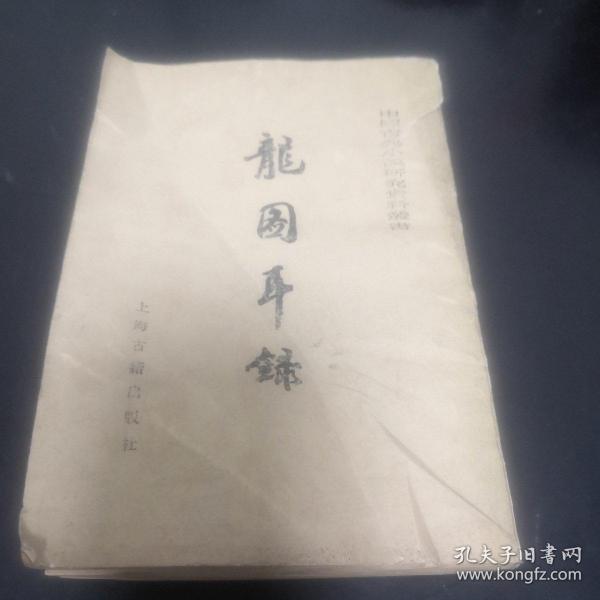 中國古典小說研究資料叢書
龍圖耳錄
上海古籍出版社
孔夫子旧书网
www.kongfz.com